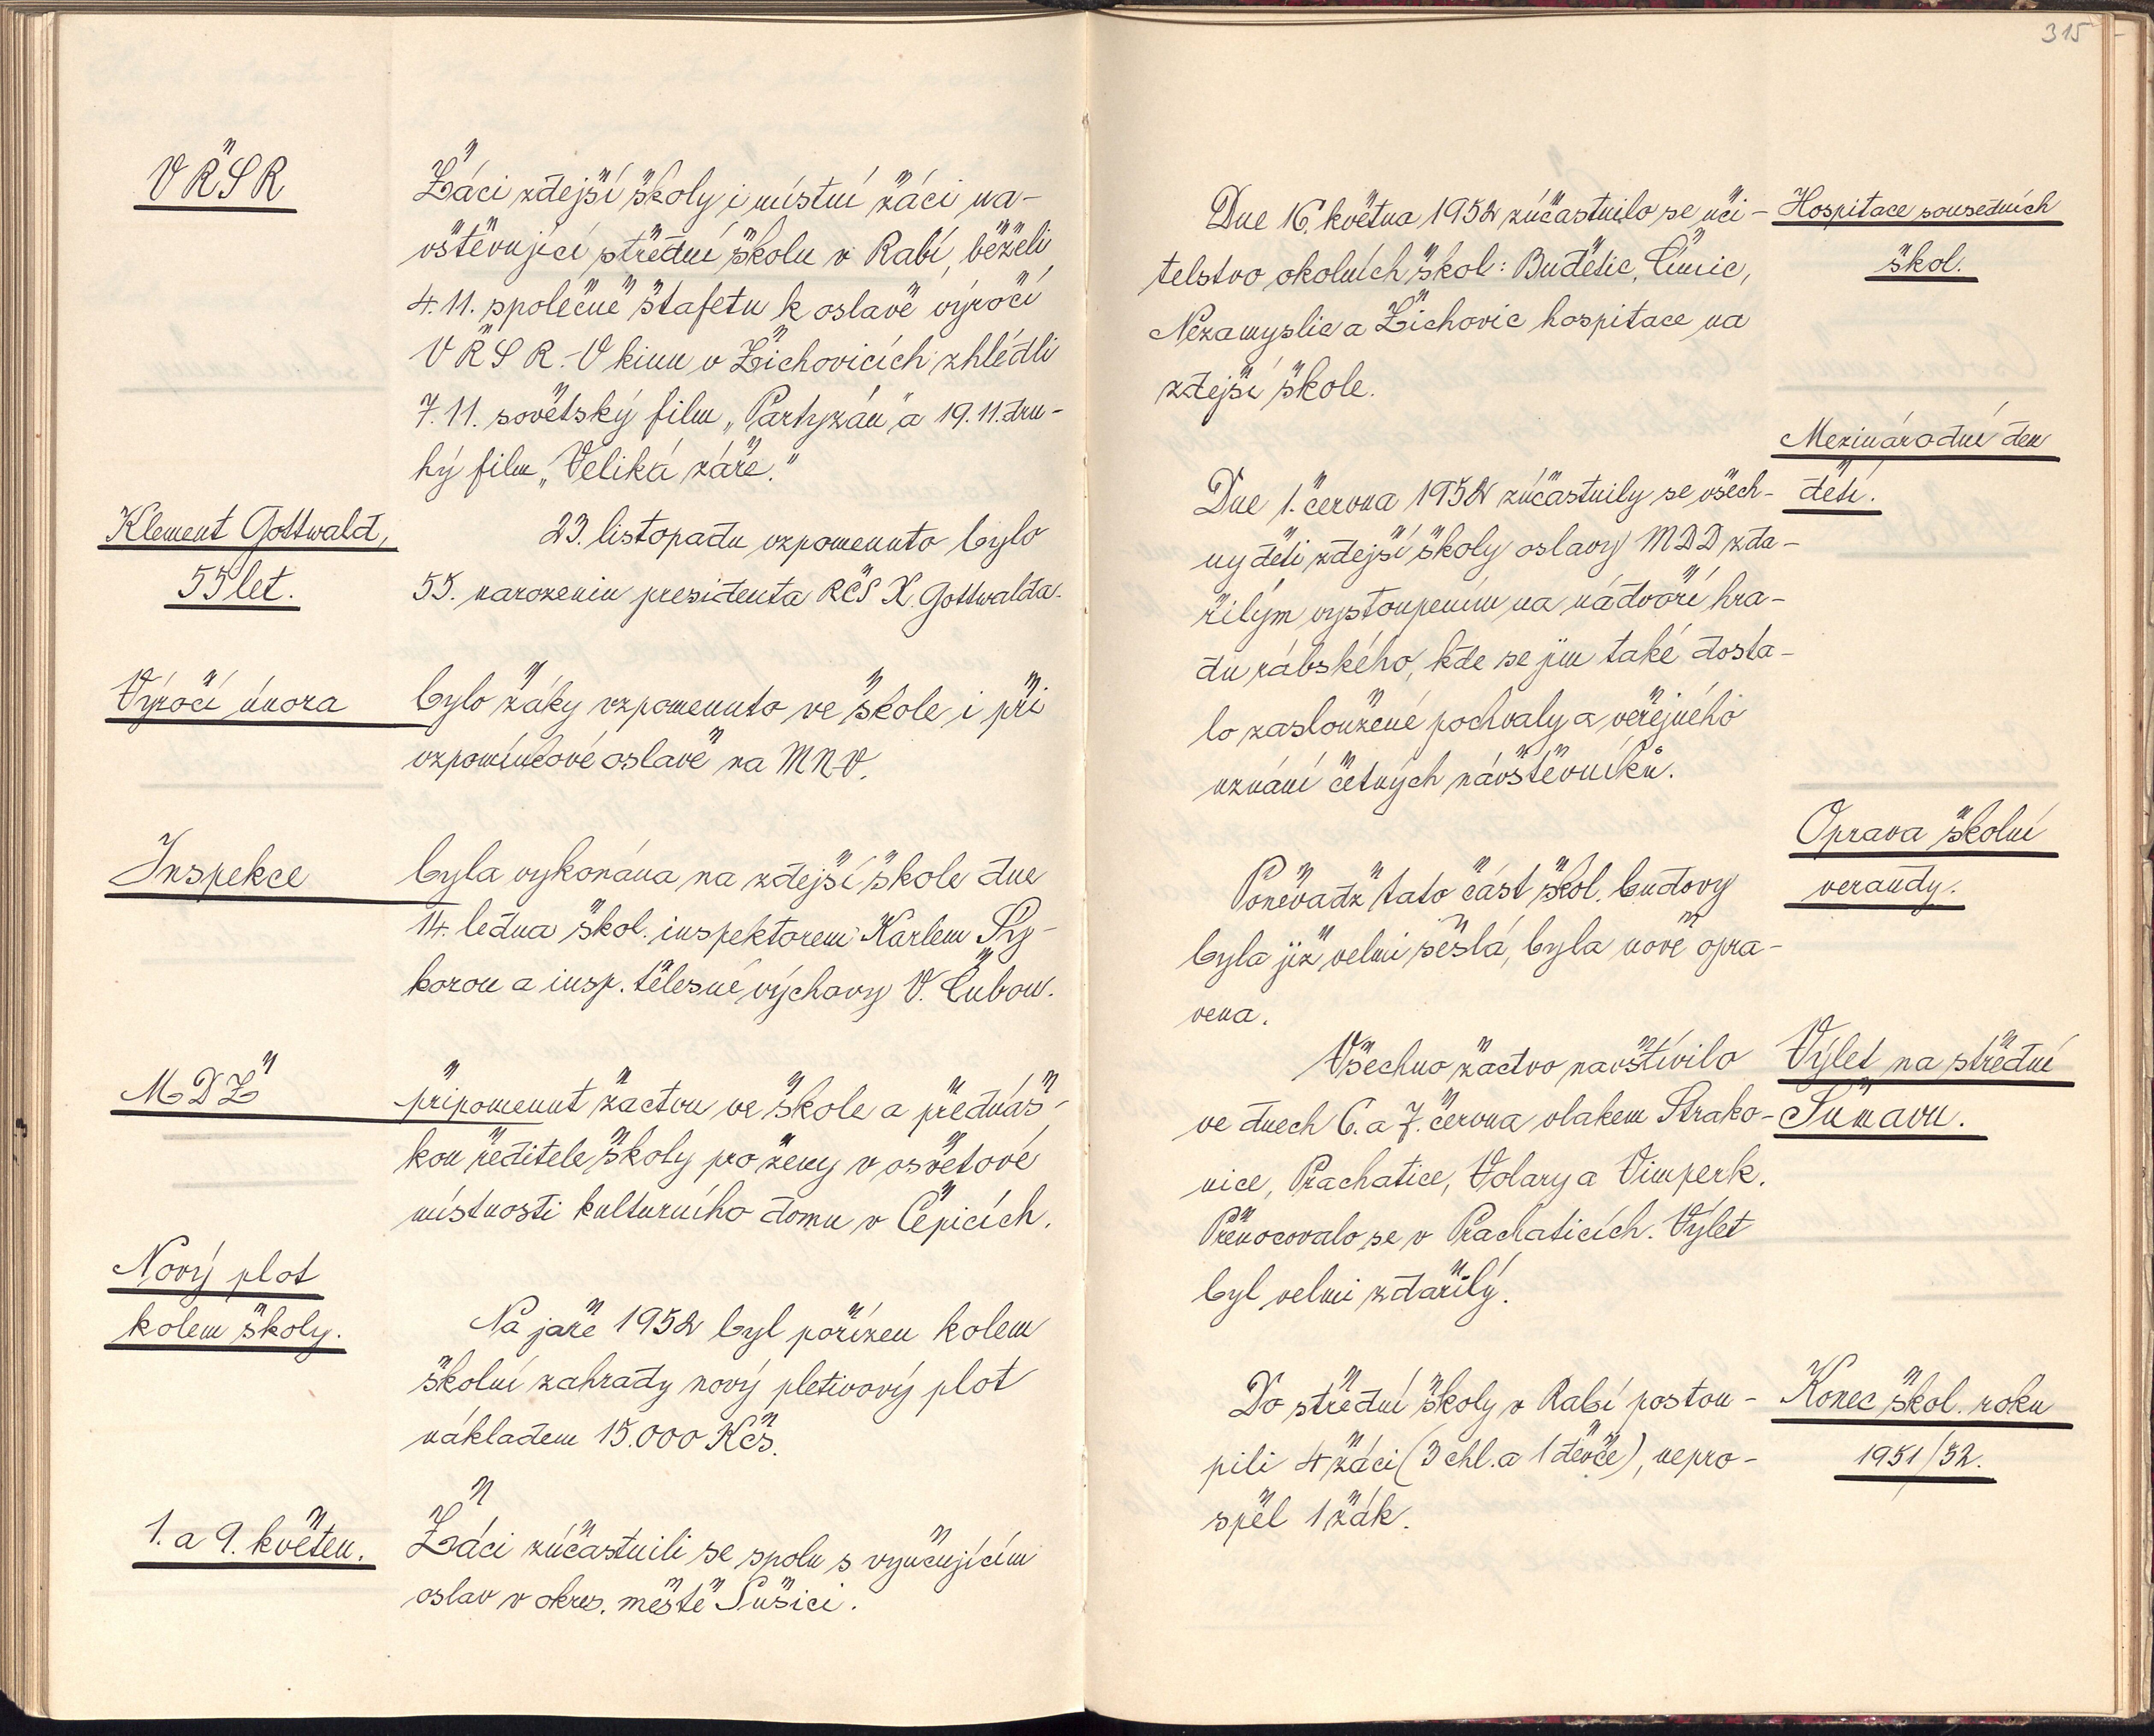 315
VŘSR
Žáci zdejší školy i místní žáci na-
vštěvující střední školu v Rabí, běželi
4. 11. společně štafetu k oslavě výročí
VŘSR. V kinu v Žichovicích zhlédli
7. 11. sovětský film „Partyzán" a 19. 11. dru-
hý film „Veliká záře."
Klement Gottwald,
55 let.
23. listopadu vzpomenuto bylo
55. narozenin presidenta RČS K. Gottwalda.
Výročí února
bylo žáky vzpomenuto ve škole i při
vzpomínkové oslavě na MNV.
Inspekce
byla vykonána na zdejší škole dne
14. ledna škol. inspektorem Karlem Sý-
korou a insp. tělesné výchovy V. Čubou.
MDŽ
připomenut žactvu ve škole a přednáš-
kou ředitele školy pro ženy v osvětové
místnosti kulturního domu v Čepicích.
Nový plot
kolem školy.
Na jaře 1952 byl pořízen kolem
školní zahrady nový pletivový plot
nákladem 15.000 Kčs.
1. a 9. květen.
Žáci zúčastnili se spolu s vyučujícím
oslav v okres. městě Sušici.
Dne 16. května 1952 zúčastnilo se uči-
telstvo okolních škol: Budětic, Čímic,
Nezamyslic a Žichovic hospitace na
zdejší škole.
Hospitace sousedních
škol.
Mezinárodní den
dětí.
Dne 1. června 1952 zúčastnily se všech-
ny děti zdejší školy oslavy MDD zda-
řilým vystoupením na nádvoří hra-
du rábského, kde se jim také dosta-
lo zasloužené pochvaly a veřejného
uznání četných návštěvníků.
Oprava školní
verandy.
Poněvadž tato část škol. budovy
byla již velmi sešlá, byla nově opra-
vena.
Výlet na střední
Šumavu.
Všechno žactvo navštívilo
ve dnech 6. a 7. června vlakem Strako-
nice, Prachatice, Volary a Vimperk.
Přenocovalo se v Prachaticích. Výlet
byl velmi zdařilý.
Konec škol. roku
1951/52.
Do střední školy v Rabí postou-
pili 4 žáci (3 chl. a 1 děvče), nepro-
spěl 1 žák.